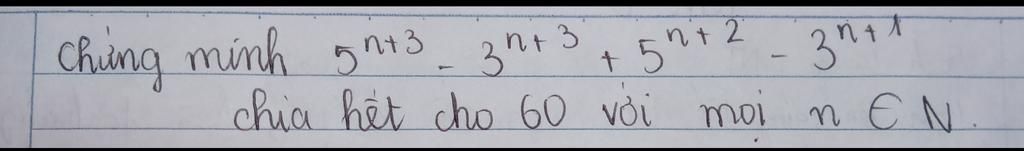 Chứng minh 5^{n+3} - 3^{n+3} + 5^{n+2} - 3^{n+1}
chia hết cho 60 với mọi n ∈ N.